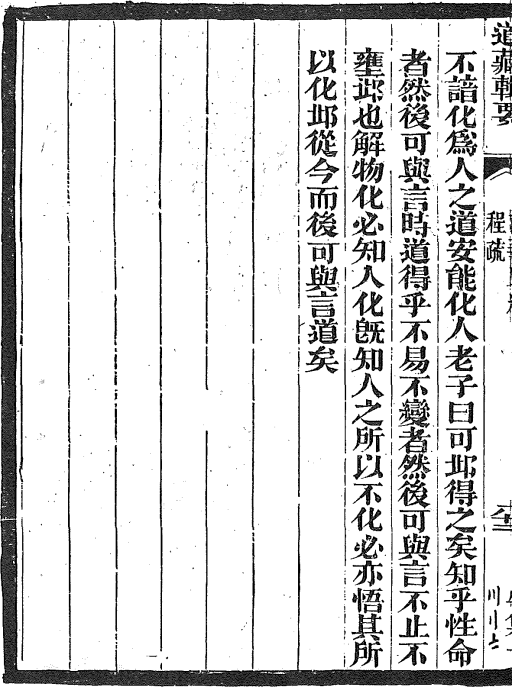 道藏輯要
程疏
不諳化爲人之道安能化人老子曰可邶得之矣知乎性命
者然後可與言時道得乎不易不變者然後可與言不止不
壅邶也解物化必知人化旣知人之所以不化必亦悟其所
以化邶從今而後可與言道矣